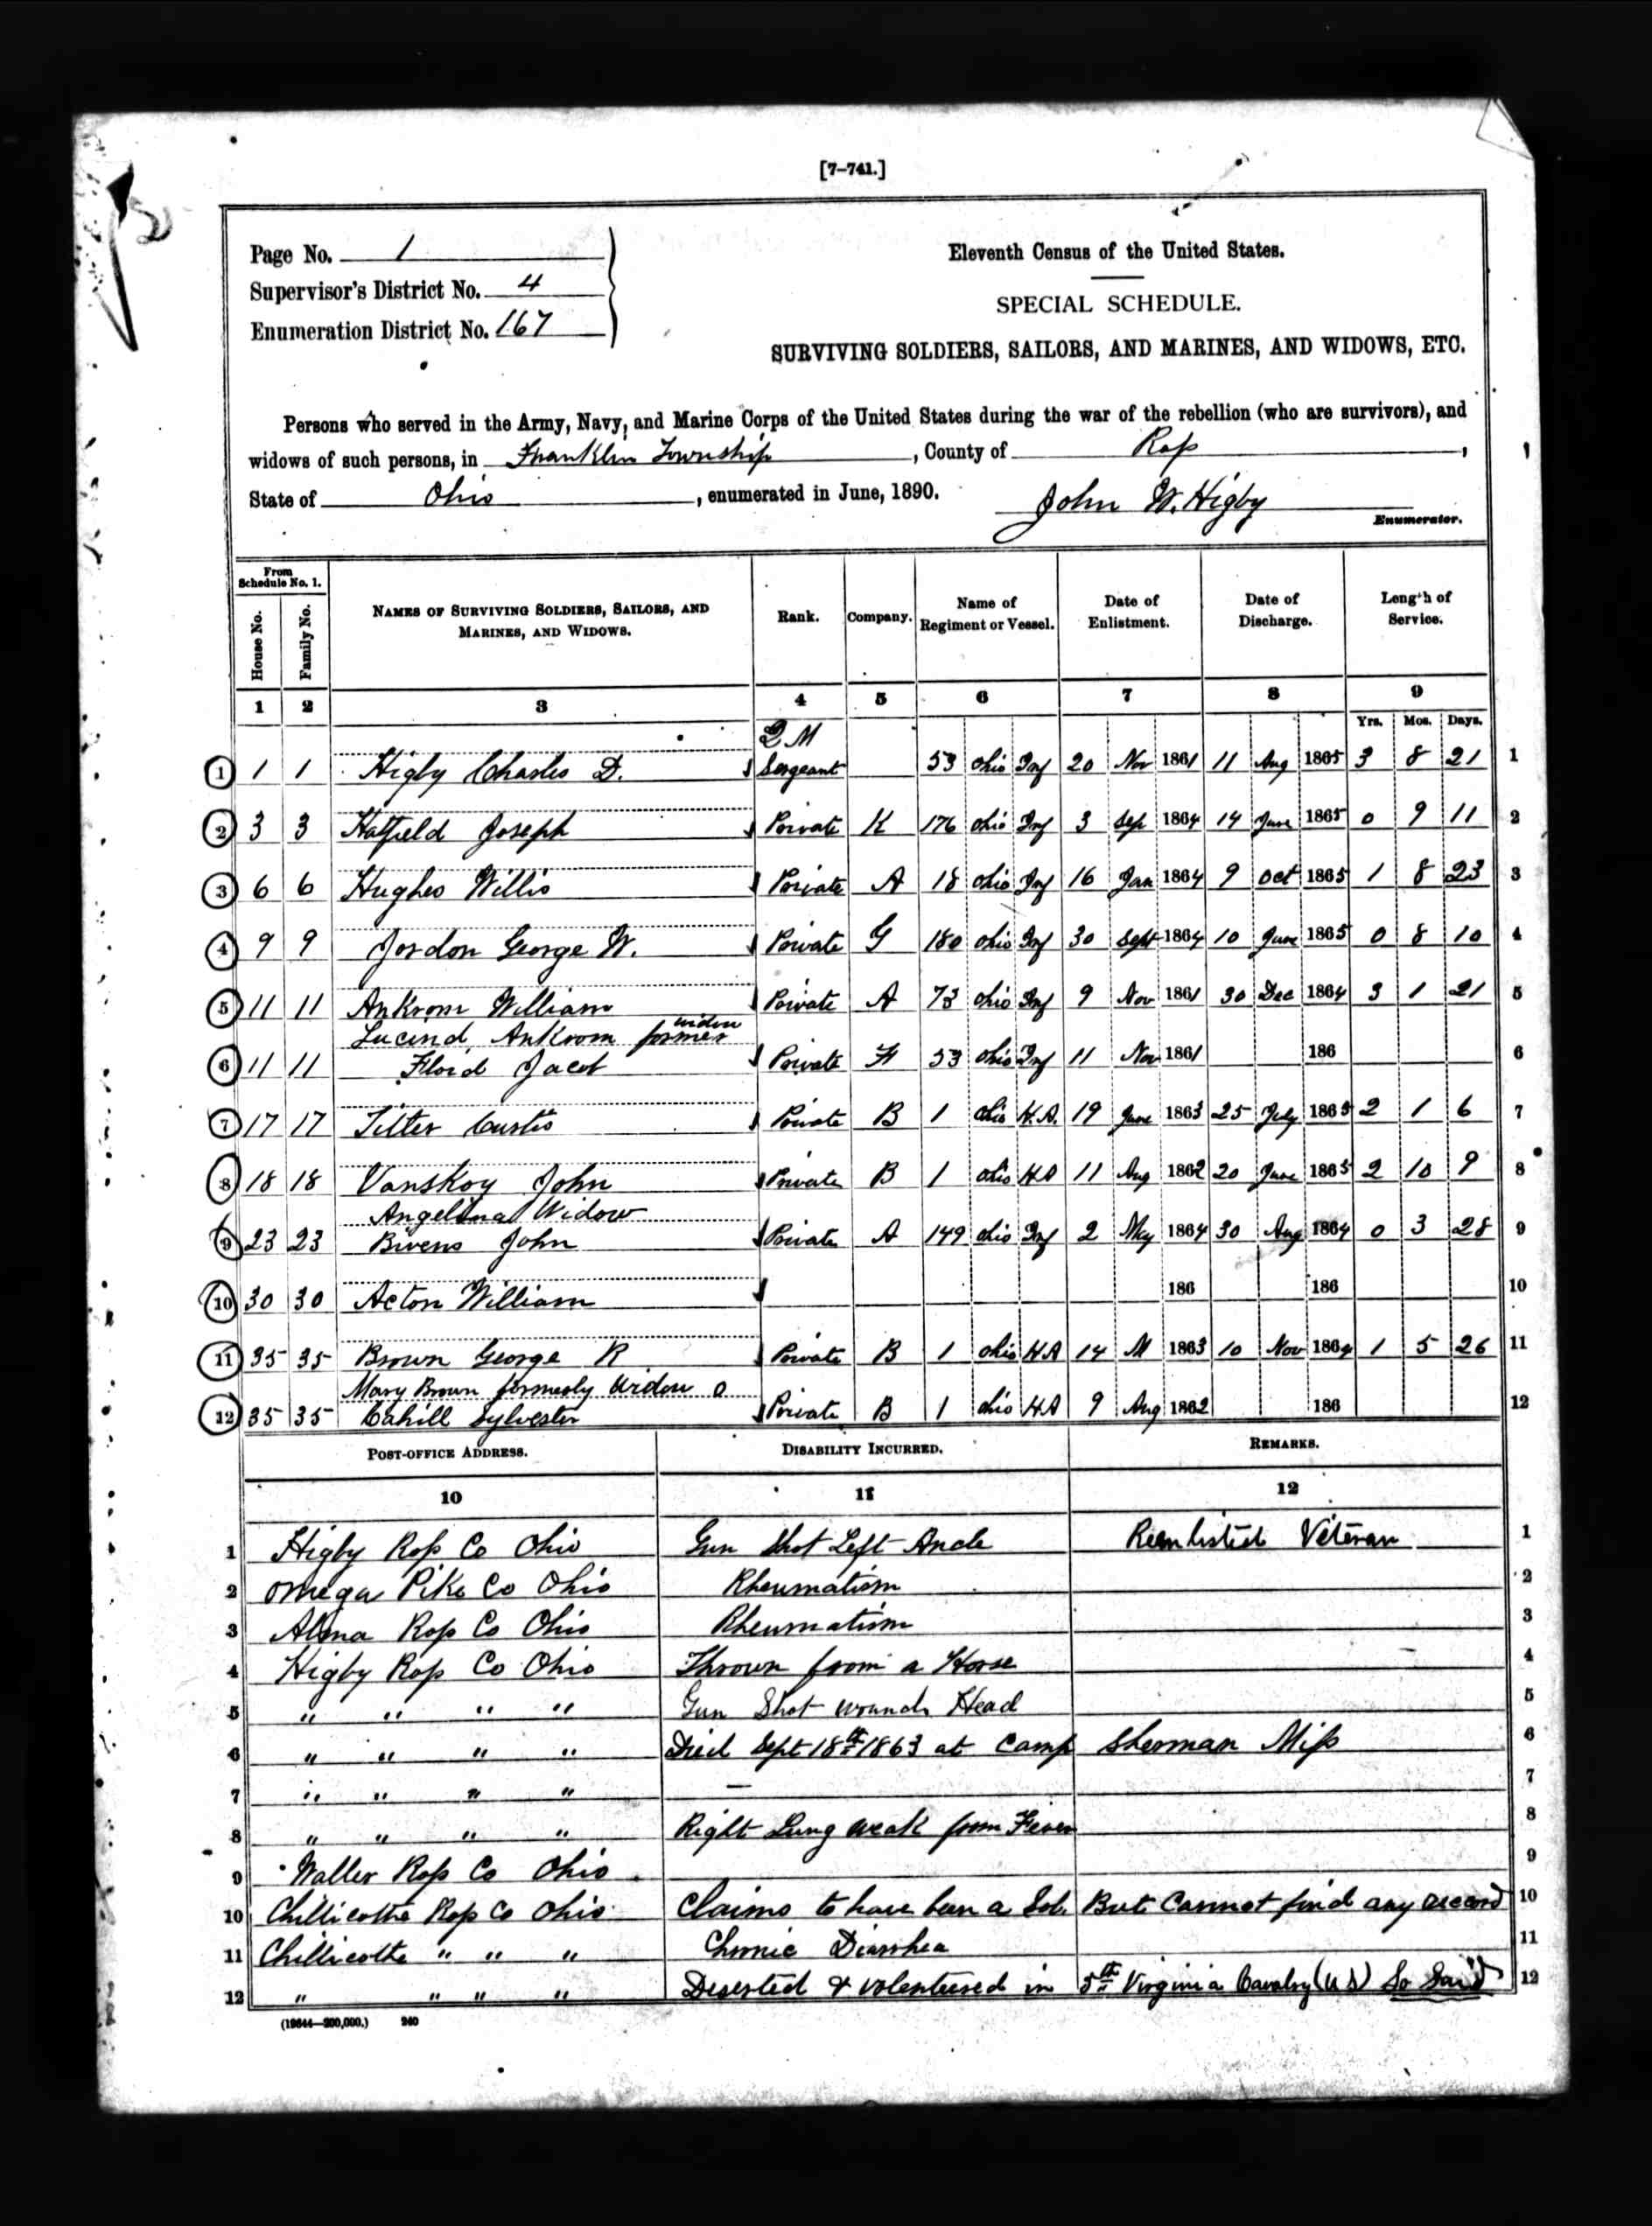 [7-741.]
Page No. 1
Supervisor's District No. 4
Enumeration District No. 167
Eleventh Census of the United States.
SPECIAL SCHEDULE.
SURVIVING SOLDIERS, SAILORS, AND MARINES, AND WIDOWS, ETC.
Persons who served in the Army, Navy, and Marine Corps of the United States during the war of the rebellion (who are survivors), and
widows of such persons, in Franklin Township, County of Ross,
State of Ohio, enumerated in June, 1890. John W. Higby
Enumerator.
From Schedule No. 1. House No. Family No. NAMES OF SURVIVING SOLDIERS, SAILORS, AND MARINES, AND WIDOWS. Rank. Company. Name of Regiment or Vessel. Date of Enlistment. Date of Discharge. Length of Service.
1 2 3 4 5 6 7 8 9
Yrs. Mos. Days.
Q M
1 1 1 Higby Charles D. Sergeant 53 Ohio Inf 20 Nov 1861 11 Aug 1865 3 8 21 1
2 3 3 Hatfield Joseph Private K 176 Ohio Inf 3 Sep 1864 14 June 1865 0 9 11 2
3 6 6 Hughes Willis Private A 18 Ohio Inf 16 Jan 1864 9 Oct 1865 1 8 23 3
4 9 9 Jordon George W. Private G 180 Ohio Inf 30 Sept 1864 10 June 1865 0 8 10 4
5 11 11 Ankrom William Private A 73 Ohio Inf 9 Nov 1861 30 Dec 1864 3 1 21 5
Lucind Ankrom former widow
6 11 11 Floid Jacob Private H 53 Ohio Inf 11 Nov 1861 186 6
7 17 17 Titter Curtis Private B 1 Ohio H.A. 19 June 1863 25 July 1865 2 1 6 7
8 18 18 Vanskoy John Private B 1 Ohio H A 11 Aug 1862 20 June 1865 2 10 9 8
Angelina Widow
9 23 23 Bivens John Private A 149 Ohio Inf 2 May 1864 30 Aug 1864 0 3 28 9
10 30 30 Acton William 186 186 10
11 35 35 Brown George R Private B 1 Ohio H A 14 M 1863 10 Nov 1864 1 5 26 11
Mary Brown formerly Widow o
12 35 35 Cahill Sylvester Private B 1 Ohio H A 9 Aug 1862 186 12
POST-OFFICE ADDRESS. DISABILITY INCURRED. REMARKS.
10 11 12
1 Higby Ross Co Ohio Gun Shot Left Ancle Reenlisted Veteran 1
2 Omega Pike Co Ohio Rheumatism 2
3 Alma Ross Co Ohio Rheumatism 3
4 Higby Ross Co Ohio Thrown from a Horse 4
5 " " " " Gun Shot wounds Head 5
6 " " " " Died Sept 18th 1863 at Camp Sherman Miss 6
7 " " " " — 7
8 " " " " Right Lung weak from Fever 8
9 Waller Ross Co Ohio 9
10 Chillicothe Ross Co Ohio Claims to have been a Sol. But Cannot find any record 10
11 Chillicothe " " " Chronic Diarrhea 11
12 " " " " Deserted & volenteered in 5th Virginia Cavalry (U S) So Said 12
(19644—200,000.) 240